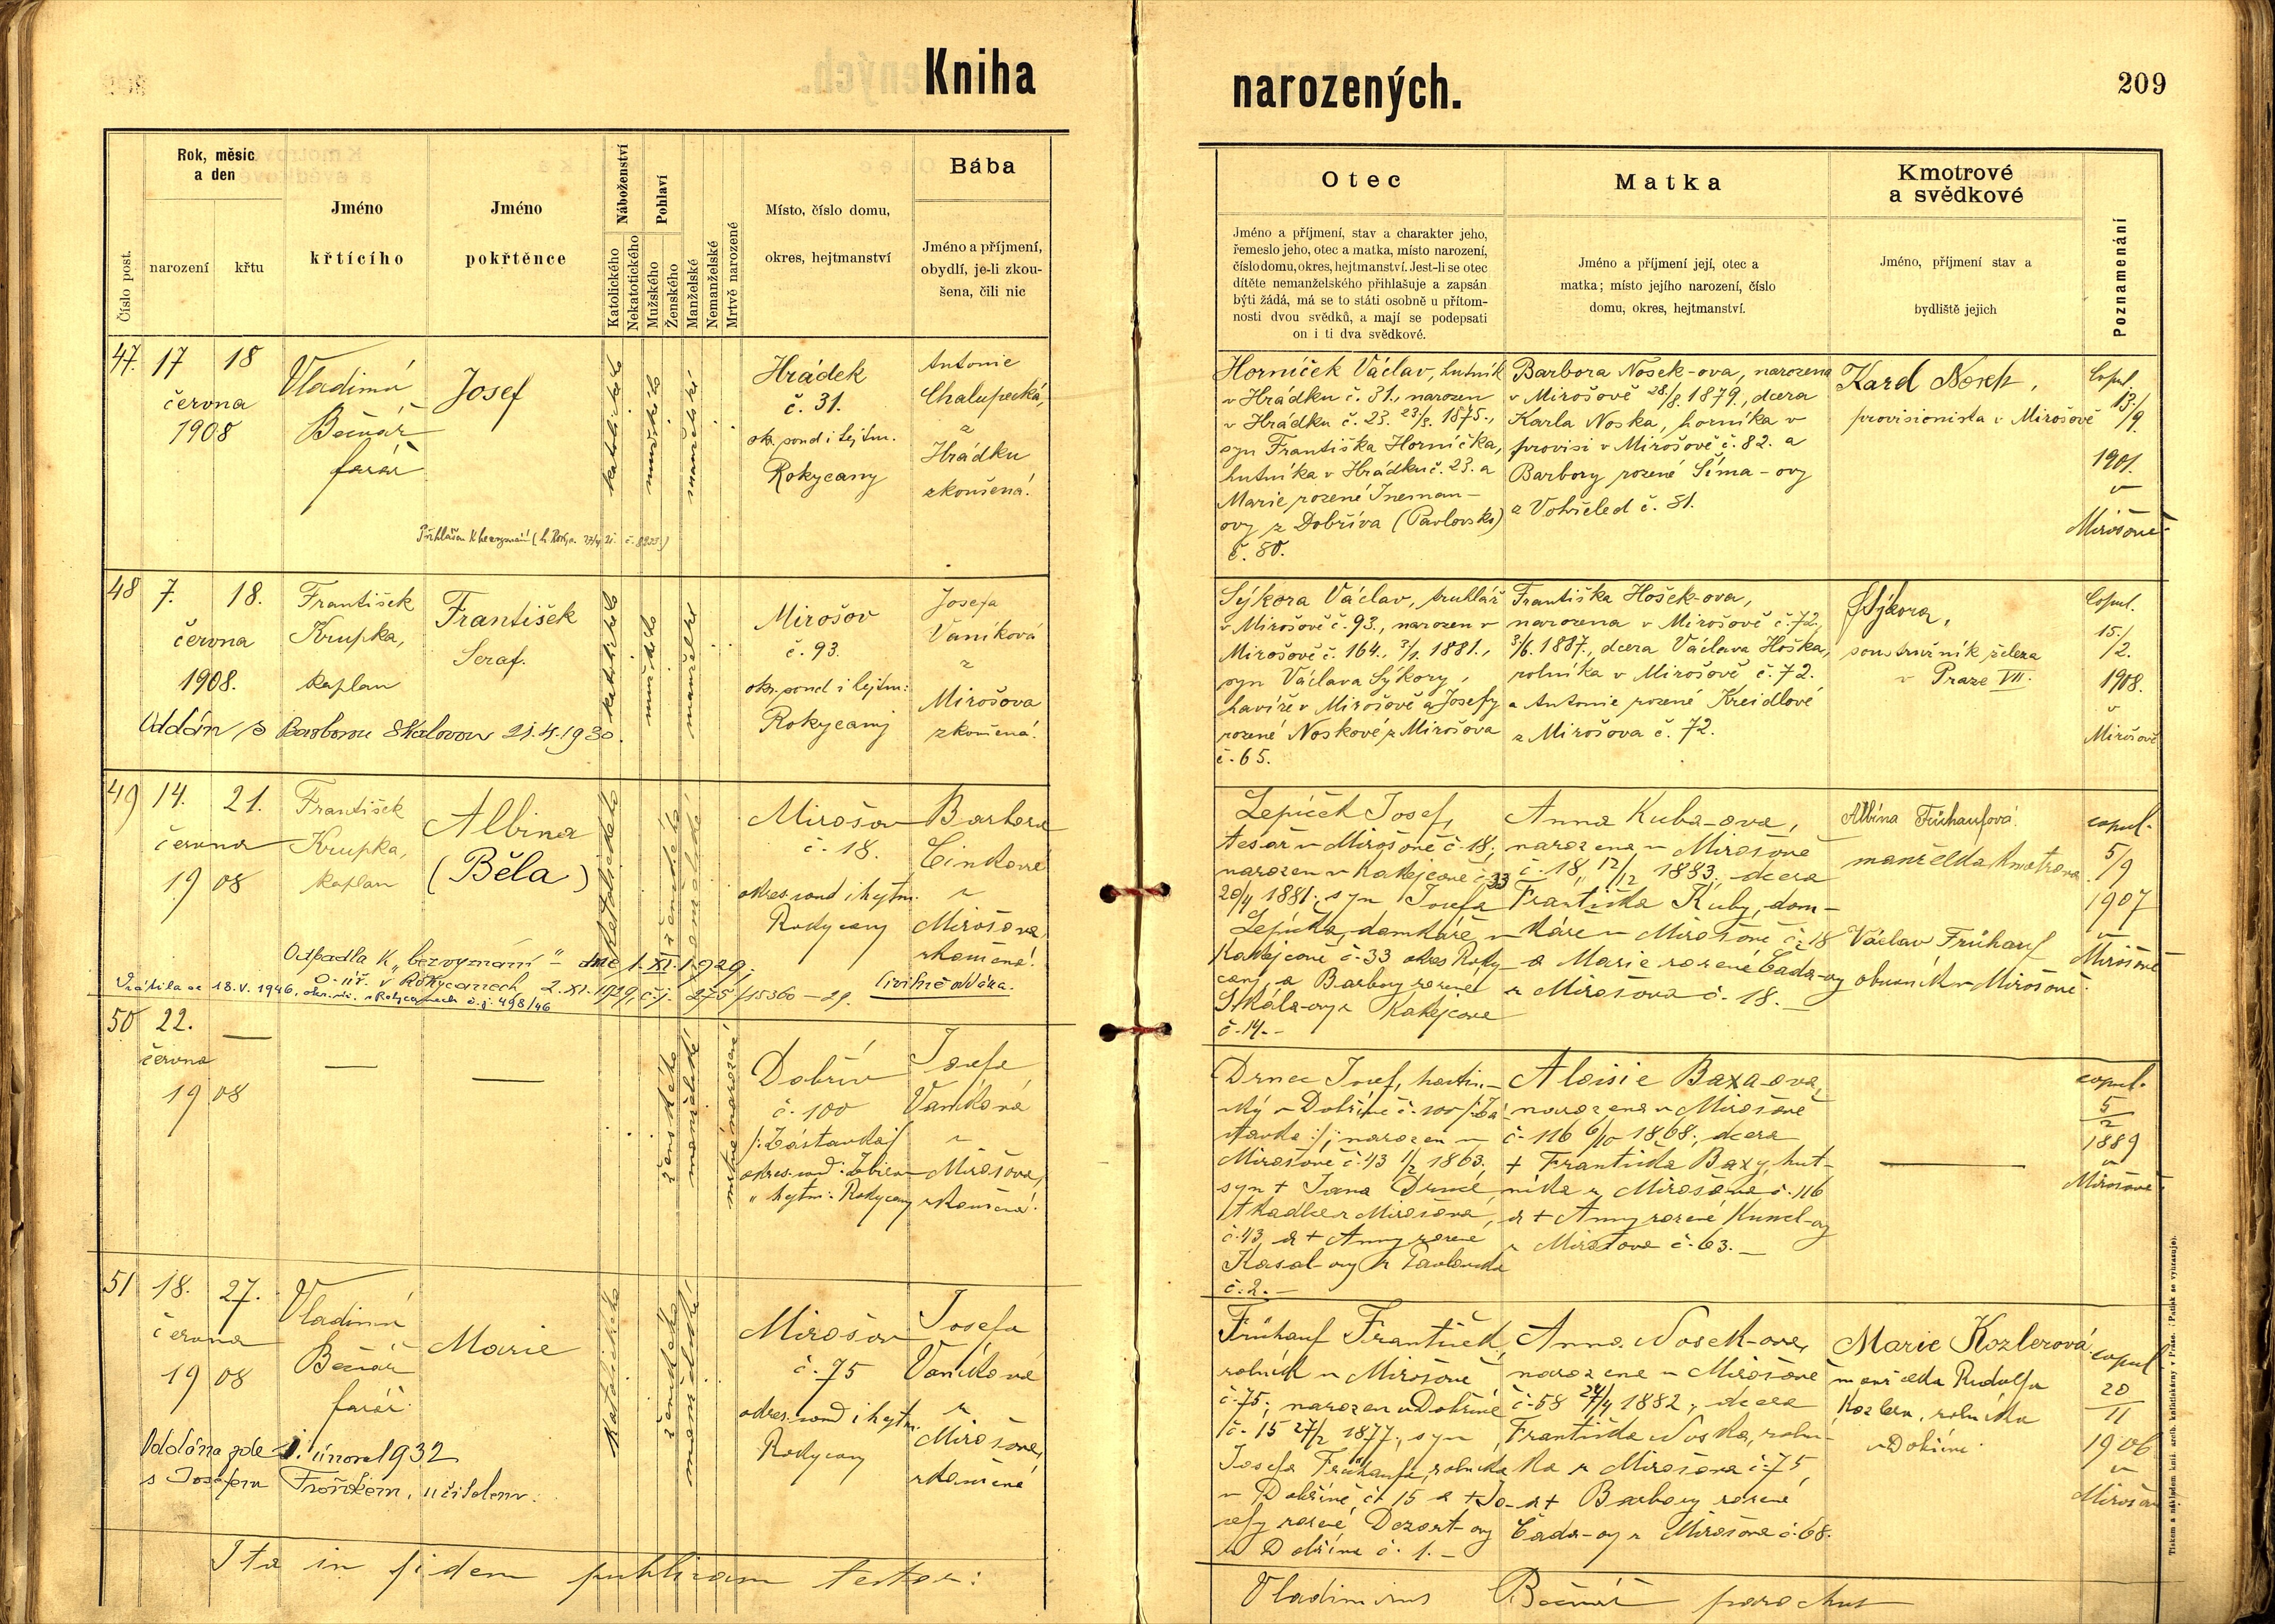 Kniha
narozených.
209
Číslo post.
Rok, měsíc
a den
narození
křtu
Jméno
křtícího
Jméno
pokřtěnce
Náboženství
Katolického
Nekatolického
Pohlaví
Mužského
Ženského
Manželské
Nemanželské
Mrtvě narozené
Místo, číslo domu,
okres, hejtmanství
Bába
Jméno a příjmení,
obydlí, je-li zkou-
šena, čili nic
Otec
Jméno a příjmení, stav a charakter jeho,
řemeslo jeho, otec a matka, místo narození,
číslo domu, okres, hejtmanství. Jest-li se otec
dítěte nemanželského přihlašuje a zapsán
býti žádá, má se to státi osobně u přítom-
nosti dvou svědků, a mají se podepsati
on i ti dva svědkové.
Matka
Jméno a příjmení její, otec a
matka; místo jejího narození, číslo
domu, okres, hejtmanství.
Kmotrové
a svědkové
Jméno, příjmení stav a
bydliště jejich
Poznamenání
47. 17 18
června
1908
Vladimír
Bečvář
farář
Josef
katolického
mužského
manželské
Hrádek
č. 31.
okr. soud i hejtm.
Rokycany
Antonie
Chalupecká,
z
Hrádku
zkoušená.
Horníček Václav, hutník
v Hrádku č. 31., narozen
v Hrádku č. 23. 1875.,
syn Františka Horníčka,
hutníka v Hrádku č. 23. a
Marie rozené
ovy z Dobříva (Pavlovsko)
č. 80.
Barbora Nosek-ova, narozena
v Mirošově 28/8. 1879., dcera
Karla Noska, horníka v
provisi v Mirošově č. 82. a
Barbory rozené Šíma-ovy
z č. 81.
Karel Nosek,
provisionista v Mirošově
Copul.
13./
/9.
1901.
v
Mirošově
48 7. 18.
června
1908.
František
Krupka,
kaplan
František
Seraf.
katolického
mužského
manželské
Mirošov
č. 93.
okr. soud i hejtm:
Rokycany
Josefa
Vaníková
z
Mirošova
zkoušená.
Oddán s Barborou Skalovou 21.4.1930.
Sýkora Václav, truhlář
v Mirošově č. 93., narozen v
Mirošově č. 164., 3/1. 1881.,
syn Václava Sýkory,
havíře v Mirošově a Josefy
rozené Noskové z Mirošova
č. 65.
Františka Hošek-ova,
narozena v Mirošově č. 72.,
3/6. 1887., dcera Václava Hoška,
rolníka v Mirošově č. 72.
a Antonie rozené Kreidlové
z Mirošova č. 72.
Sýkora,
soustružník železa
v Praze VII.
Copul.
15./
/2.
1908.
v
Mirošově
49 14. 21.
června
19 08
František
Krupka,
kaplan
Albina
(Běla)
katolického
ženského
manželské
Mirošov
č. 18.
okres. soud i hejtm.
Rokycany
Barbora
Cinková
z
Mirošova
zkoušená.
Odpadla k „bezvyznání" dne 1. XI. 1929,
o. úř. v Rokycanech, 2. XI. 1929, č.j. 275/15360 – 29. Civilně oddána.
Vrátila se 18. V. 1946, v Rokycanech č. j. 498/46
Lepíček Josef,
tesař v Mirošově č. 18;
narozen v Kakejcově č. 33
20/4 1881; syn Josefa
Lepíčka, domkáře v
Kakejcově č. 33 okres Roky-
cany, a Barbory rozené
Skála-ovy z Kakejcova
č. 14. –
Anna Kuba-ova,
narozena v Mirošově
č. 18, 12/12 1883; dcera
Františka Kuby, dom-
káře v Mirošově č. 18
a Marie rozené Čada-ovy
z Mirošova č. 18. –
Albína Frühaufová
manželka kmotrova.
Václav Frühauf
obuvník v Mirošově.
copul.
5/9
1907
v
Mirošově
50 22. —
června
19 08
—
—
ženského
manželské
mrtvě narozené
Dobřív
č. 100
/: Zástavka :/
okres. soud: Zbiroh
" hejtm: Rokycany
Josefa
Vaníková
z
Mirošova,
zkoušená.
Drnec Josef, hostin-
ský v Dobřívě č. 100 /: Zá-
stavka :/; narozen v
Mirošově č. 43 1/2 1863,
syn + Jana Drnce,
tkadlce z Mirošova,
č. 43, a + Anny rozené
Kasal-ovy z Pavlovska
č. 2. –
Aloisie Baxa-ova,
narozena v Mirošově
č. 116 6/10 1868; dcera
+ Františka Baxy, hut-
níka z Mirošova č. 116
a + Anny rozené Kuncl-ovy
z Mirošova č. 63. –
—
copul.
5
2
1889
v
Mirošově.
51 18. 27.
června
19 08
Vladimír
Bečvář
farář.
Marie
katolického
ženského
manželské
Mirošov
č. 75
okres. soud i hejtm.
Rokycany
Josefa
Vaníková
z
Mirošova,
zkoušená
Oddána zde 1. února 1932
s Josefem, učitelem.
Frühauf František,
rolník v Mirošově
č. 75; narozen v Dobřívě
č. 15 27/2 1877, syn
Josefa Frühaufa, rolníka
v Dobřívě č. 15 a + Jo-
sefy rozené Dezort-ovy
z Dobříva č. 1. –
Anna Nosek-ova,
narozena v Mirošově
č. 58 24/4 1882, dcera
Františka Noska, rolní-
ka z Mirošova č. 75,
a + Barbory rozené
Čada-ovy z Mirošova č. 68.
Marie Kozlerová
manželka Rudolfa
Kozlera, rolníka
v Dobřívě.
copul.
20
11
1906
v
Mirošově
Ita in fidem publicam testor:
Vladimirus Bečvář parochus